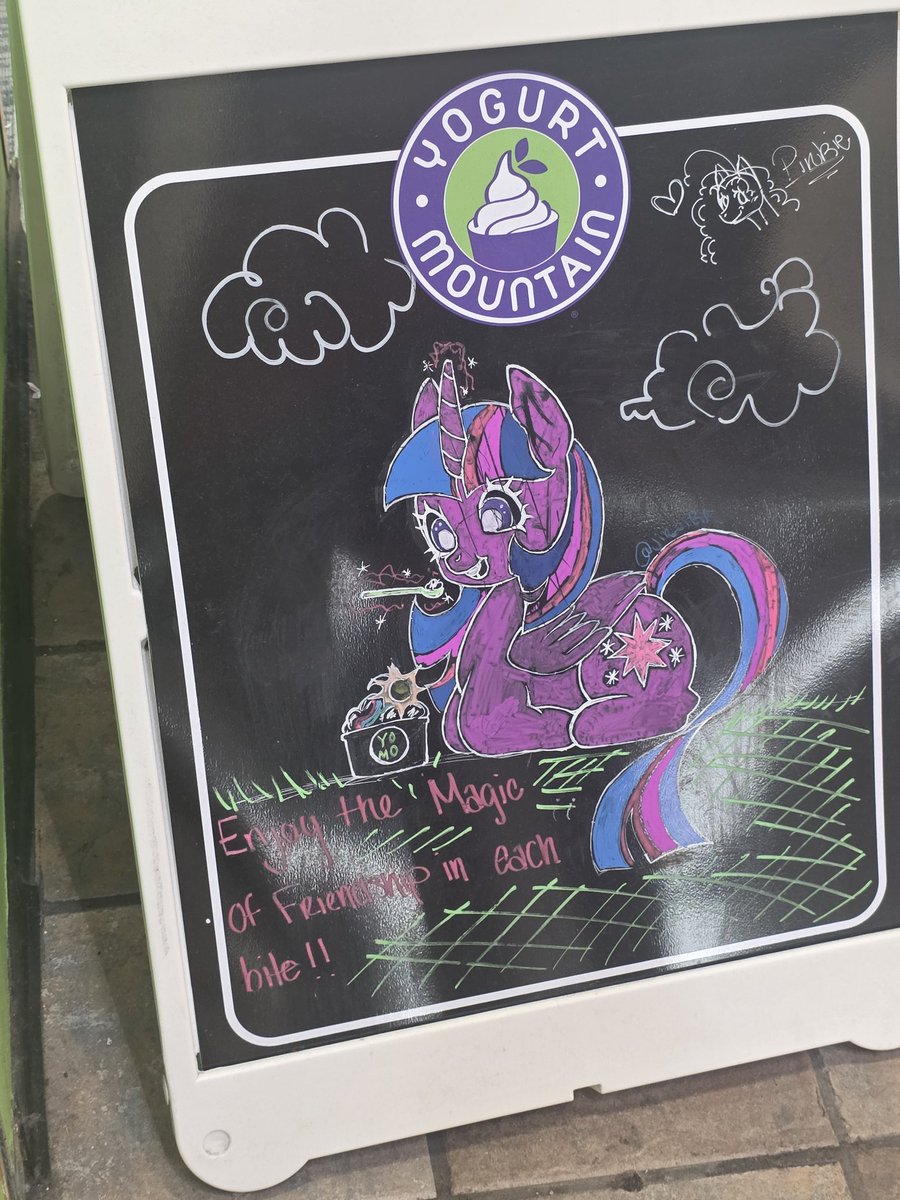 YOGURT
MOUNTAIN
Pinkie
YO
MO
Enjoy the Magic
Of Friendship in each
bite!!